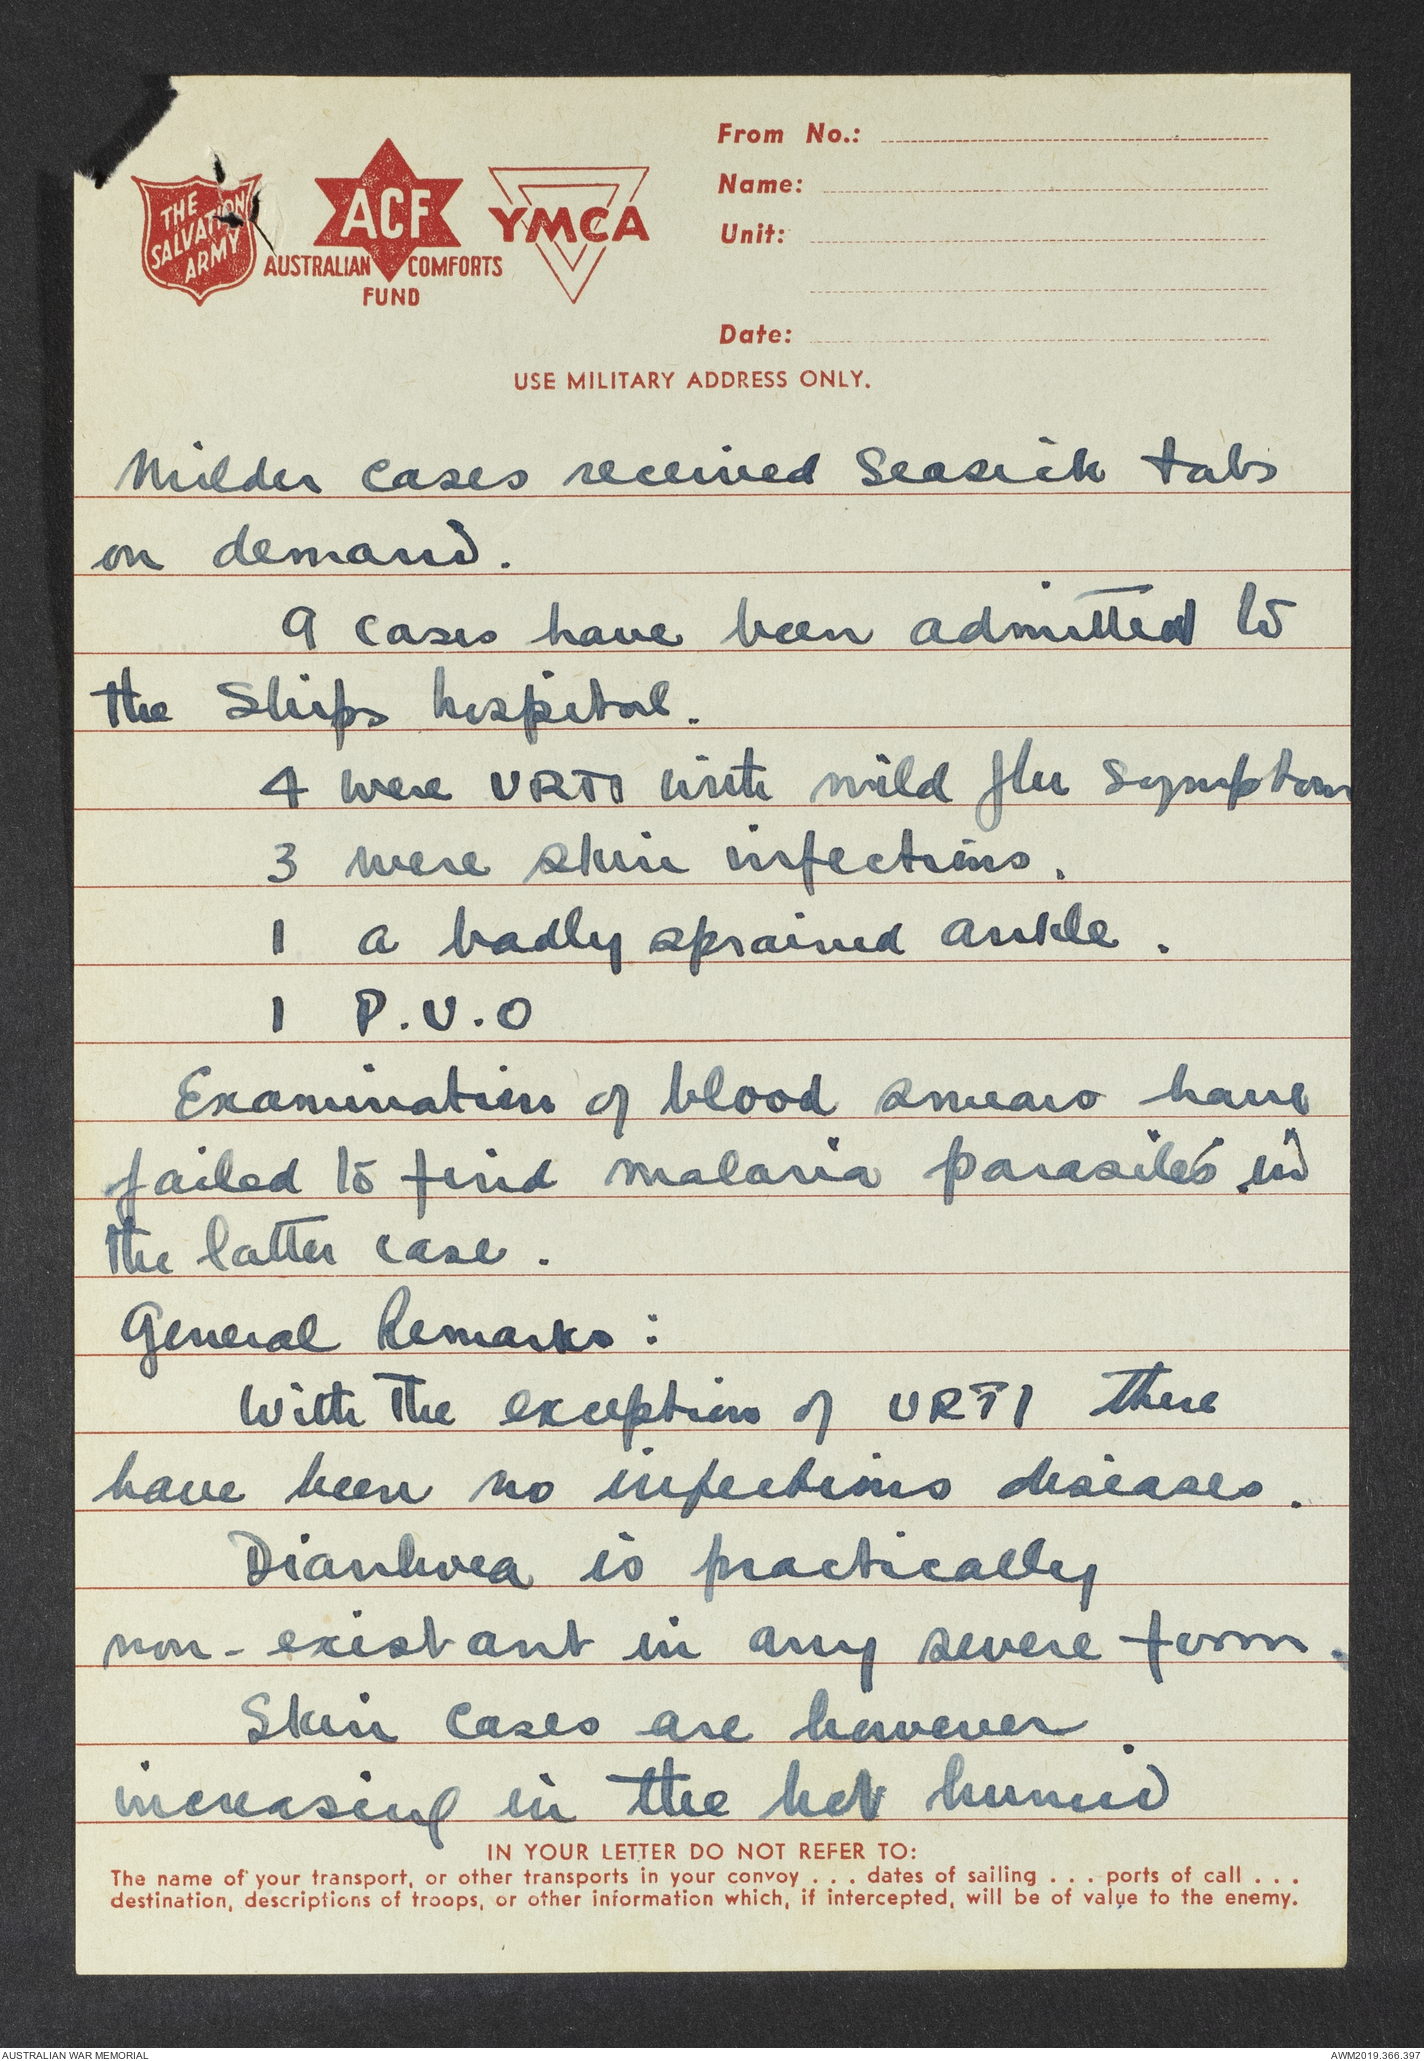 From No.:
THE SALVATION ARMY
ACF
AUSTRALIAN COMFORTS
FUND
YMCA
Name:
Unit:
Date:
USE MILITARY ADDRESS ONLY.
Milder cases received Seasick tabs
on demand.
9 cases have been admitted to
the Ships hospital.
4 were URTI with mild flu symptom
3 were skin infections.
1 a badly sprained ankle.
1 P.U.O
Examination of blood smears have
failed to find malaria parasites in
the latter case.
General Remarks:
With the exception of URTI there
have been no infectious diseases.
Diarrhoea is practically
non-existant in any severe form.
Skin cases are however
increasing in the hot humid
IN YOUR LETTER DO NOT REFER TO:
The name of your transport, or other transports in your convoy . . . dates of sailing . . . ports of call . . .
destination, descriptions of troops, or other information which, if intercepted, will be of value to the enemy.
AUSTRALIAN WAR MEMORIAL
AWM2019.366.397